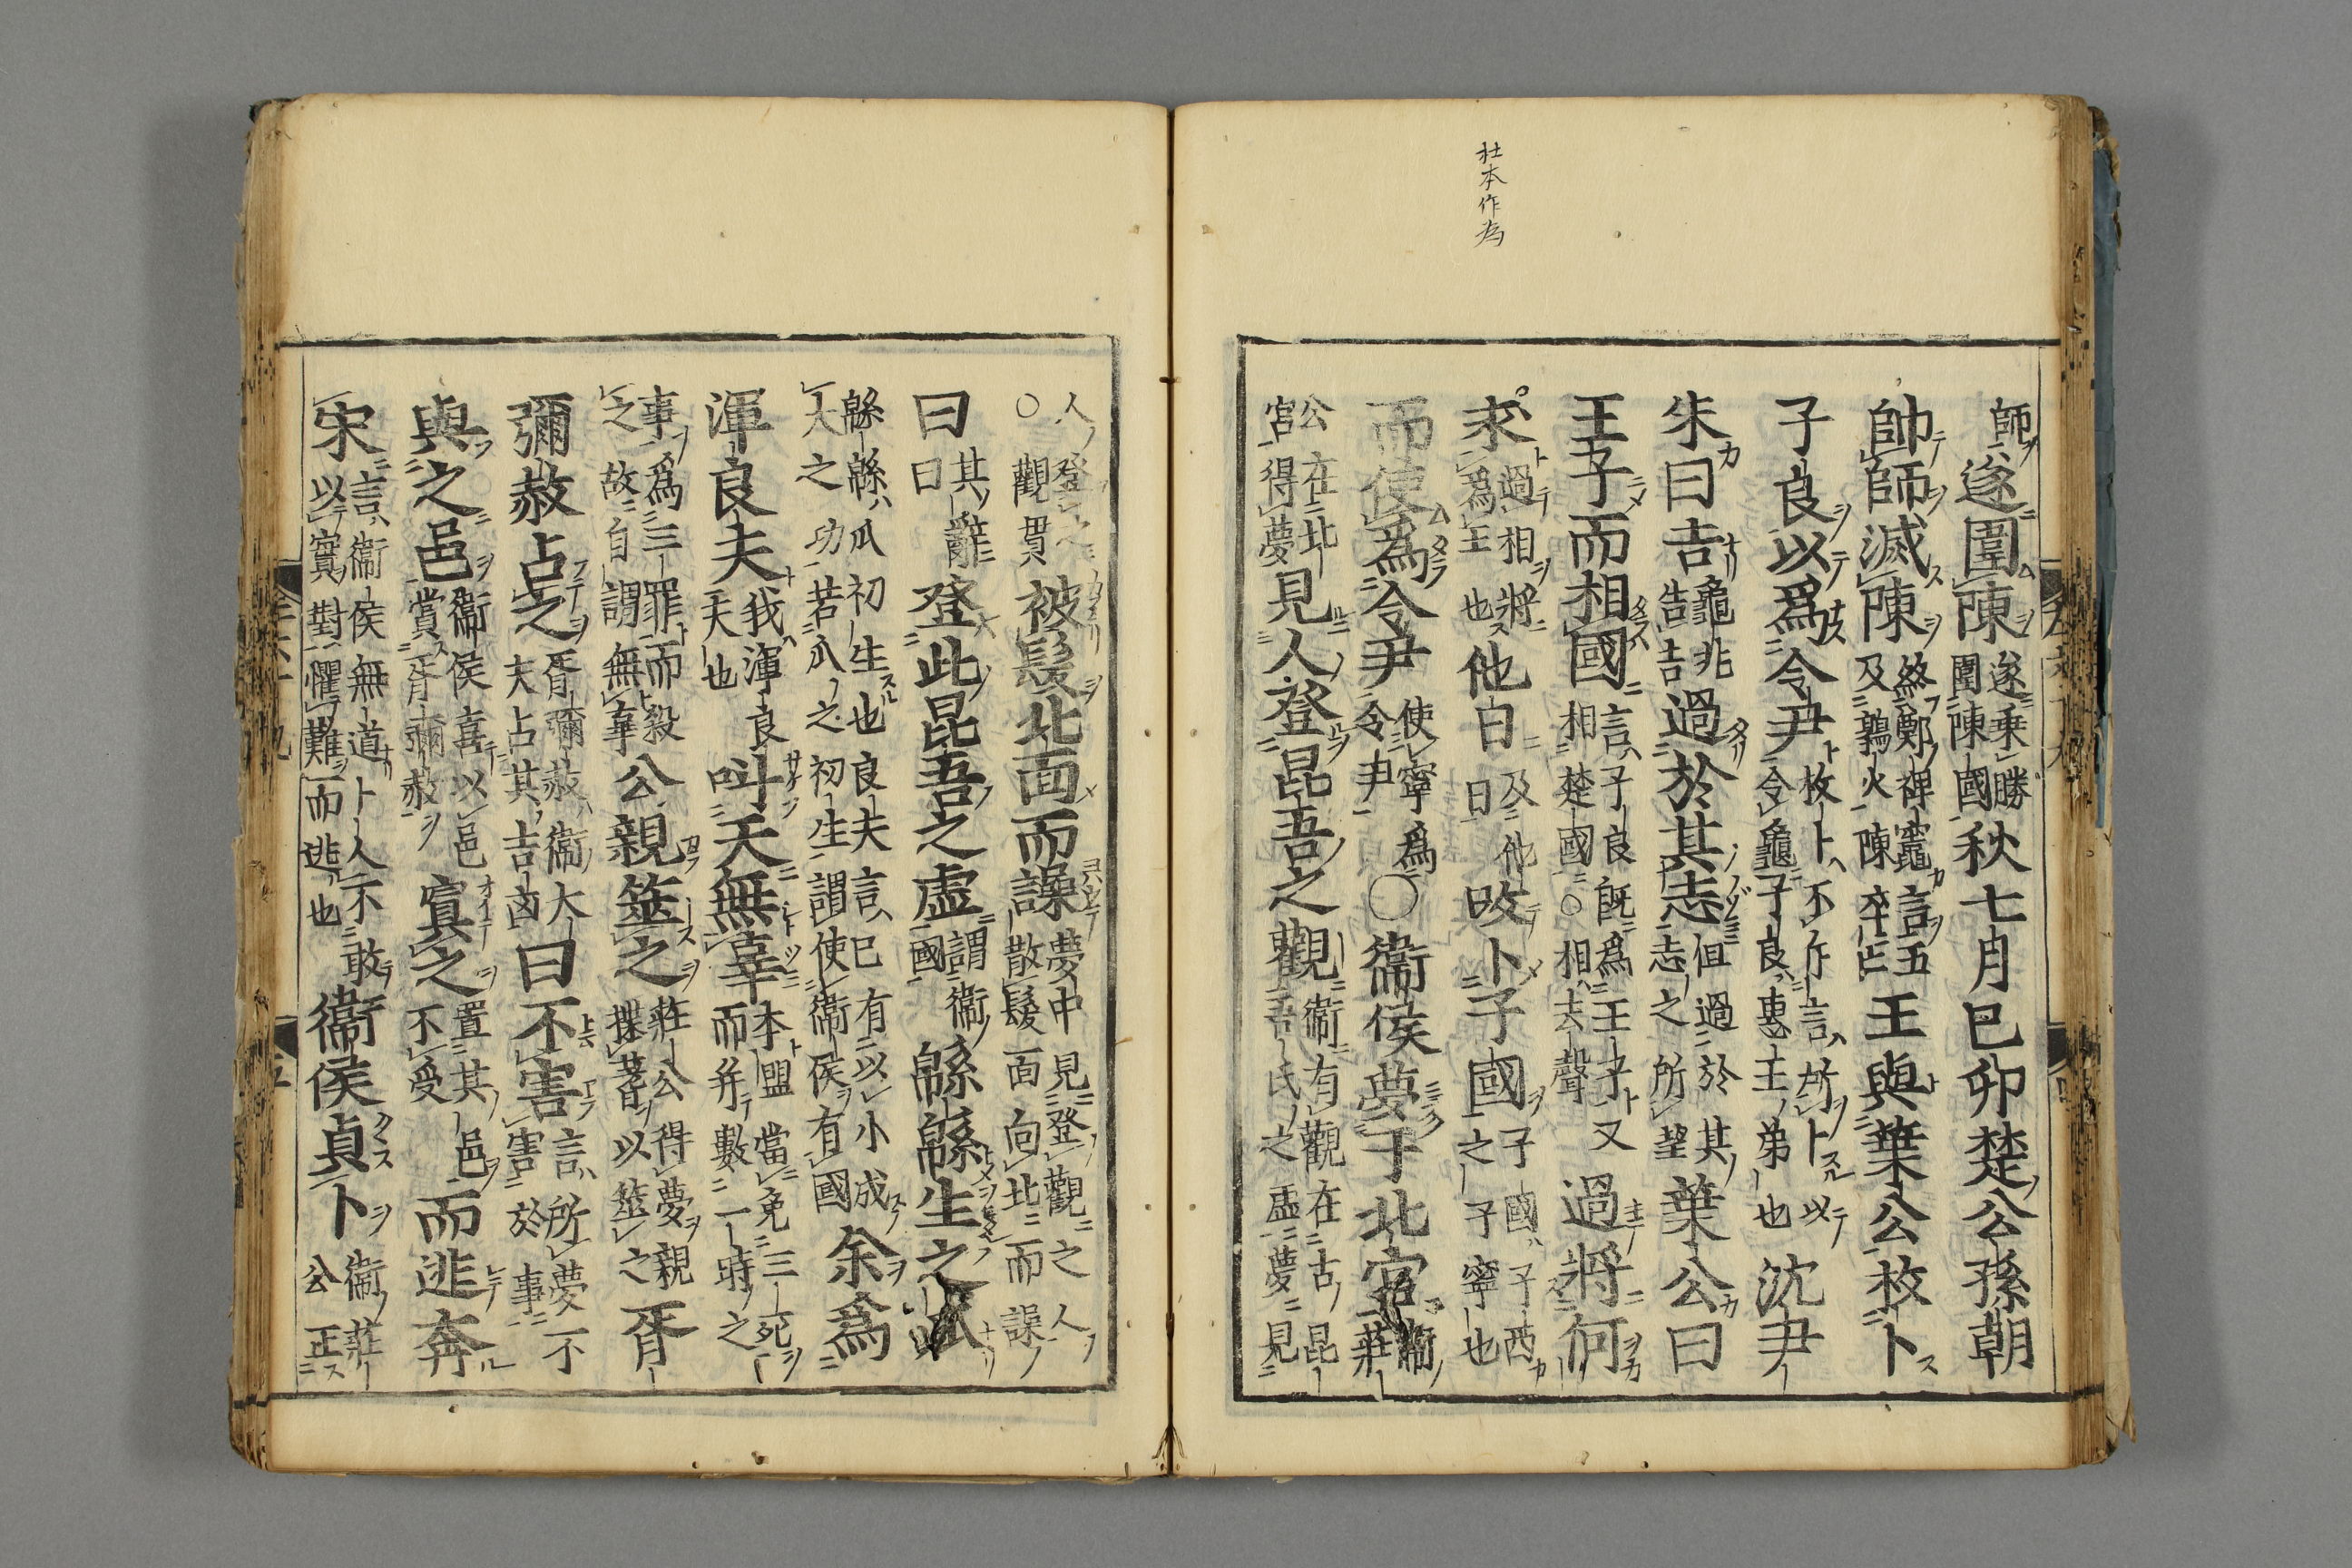 杜本作為
師遂圍陳遂乗勝圍陳國秋七月巳卯楚公孫朝
帥師滅陳終鄭裨竈言五及鶉火陳卒亡王與葉公枚卜
子良以爲令尹枚卜不斥言所卜以令龜子良惠王弟也沈尹
朱曰吉龜兆告吉過於其志但過於其志之所望葉公曰
王子而相國言子良既爲王子又相楚國○相去聲過將何
求過相將爲王也他日及他日攺卜子國子國子西之子寧也
而使爲令尹使寧爲令尹○衞侯夢于北宮衞莊
公在北宮得夢見人登昆吾之觀衞有觀在古昆吾氏之虛夢見
人登之○觀貫被髮北面而譟夢中見登觀之人散髮面向北而譟
曰其辭曰登此昆吾之虛謂衞國緜緜生之瓜
緜緜瓜初生也良夫言已有以小成大之功若瓜之初生謂使衞侯有國余爲
渾良夫我渾良夫也叫天無辜本盟當免三死而并數一時之
事爲三罪而殺之故自謂無辜公親筮之莊公得夢親揲蓍以筮之胥
彌赦占之胥彌赦衞大夫占其吉凶曰不害言所夢不害於事
與之邑衞侯喜以邑賞胥彌赦寘之置其邑不受而逃奔
宋言衞侯無道卜人不敢以實對懼難而逃也衞侯貞卜衞莊公正